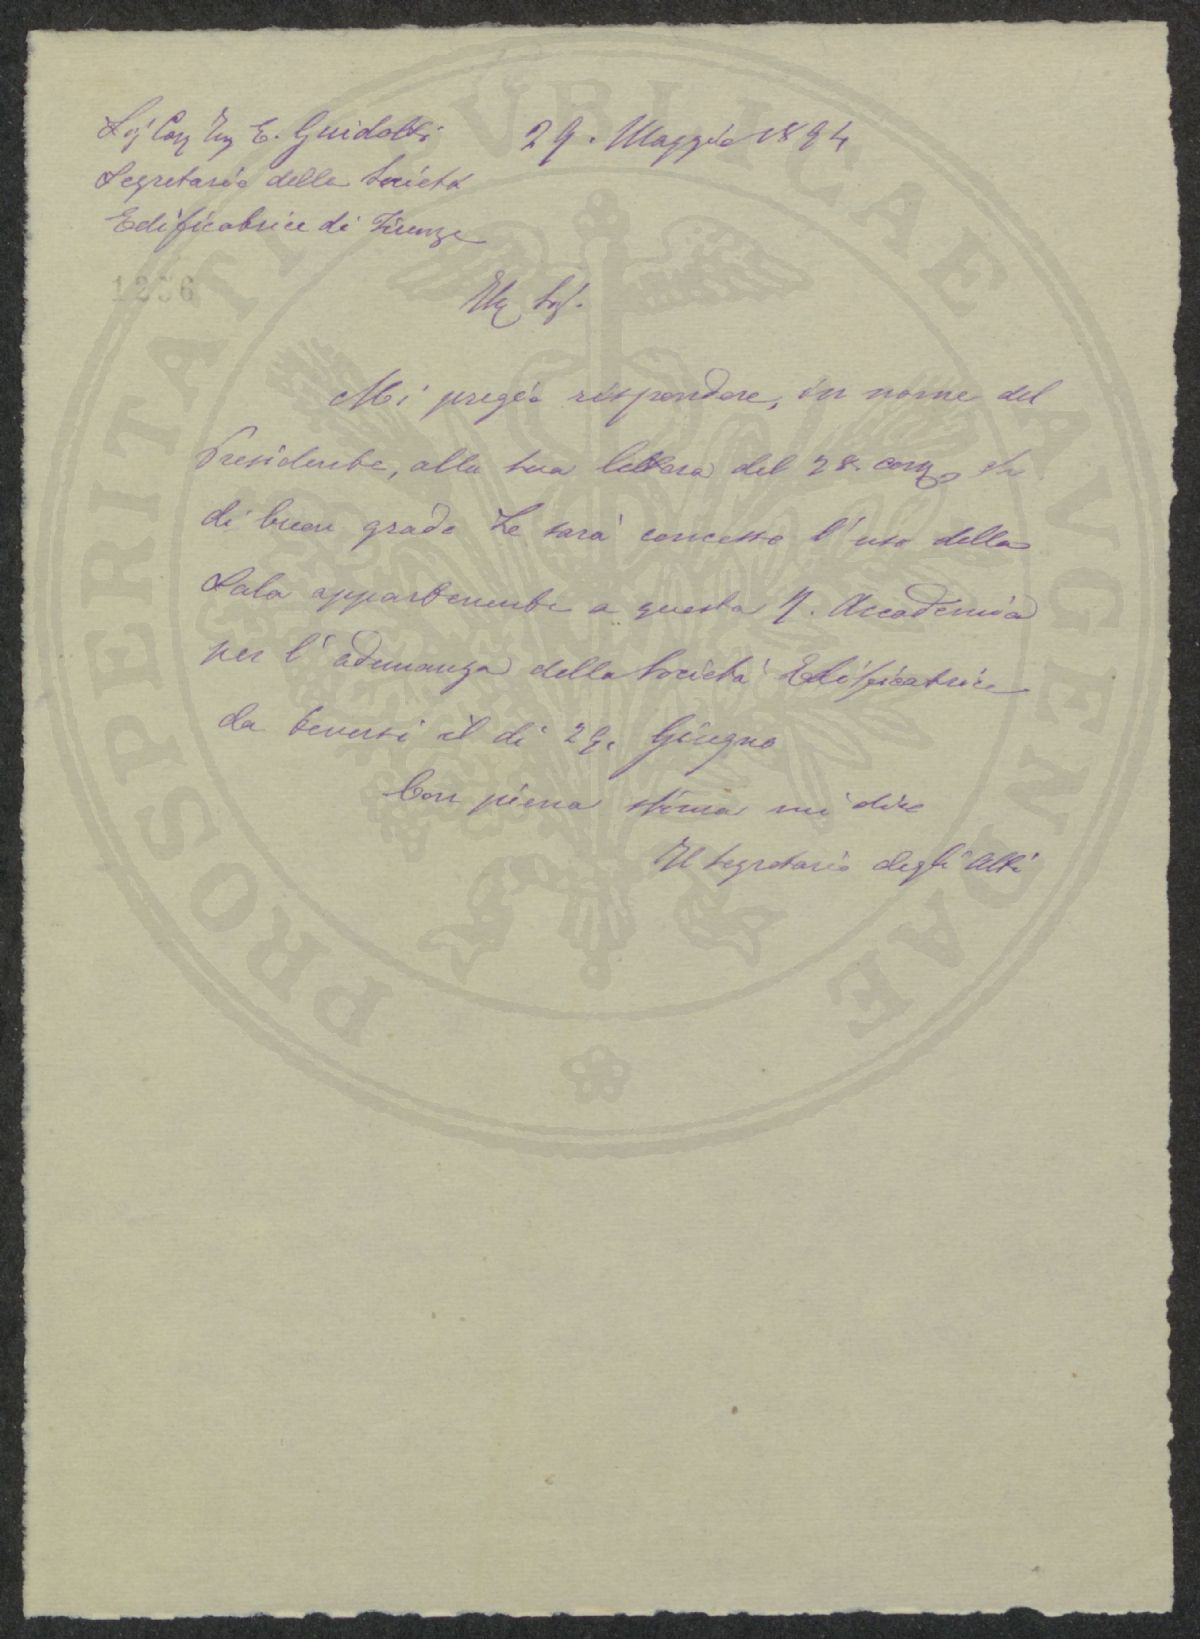 Sig Cav Ing E. Guidotti
29. Maggio 1894
Segretario della Società
Edificatrice di Firenze
1256
Sig.
Mi pregio rispondere, in nome del
Presidente, alla sua lettera del 28. corr che
di buon grado Le sarà concesso l'uso della
Sala appartenente a questa R. Accademia
per l'adunanza della Società Edificatrice
da tenersi il di 29. Giugno
Con piena stima mi dico
Il Segretario degli Atti
PROSPERITATI PVBLICAE AVGENDAE